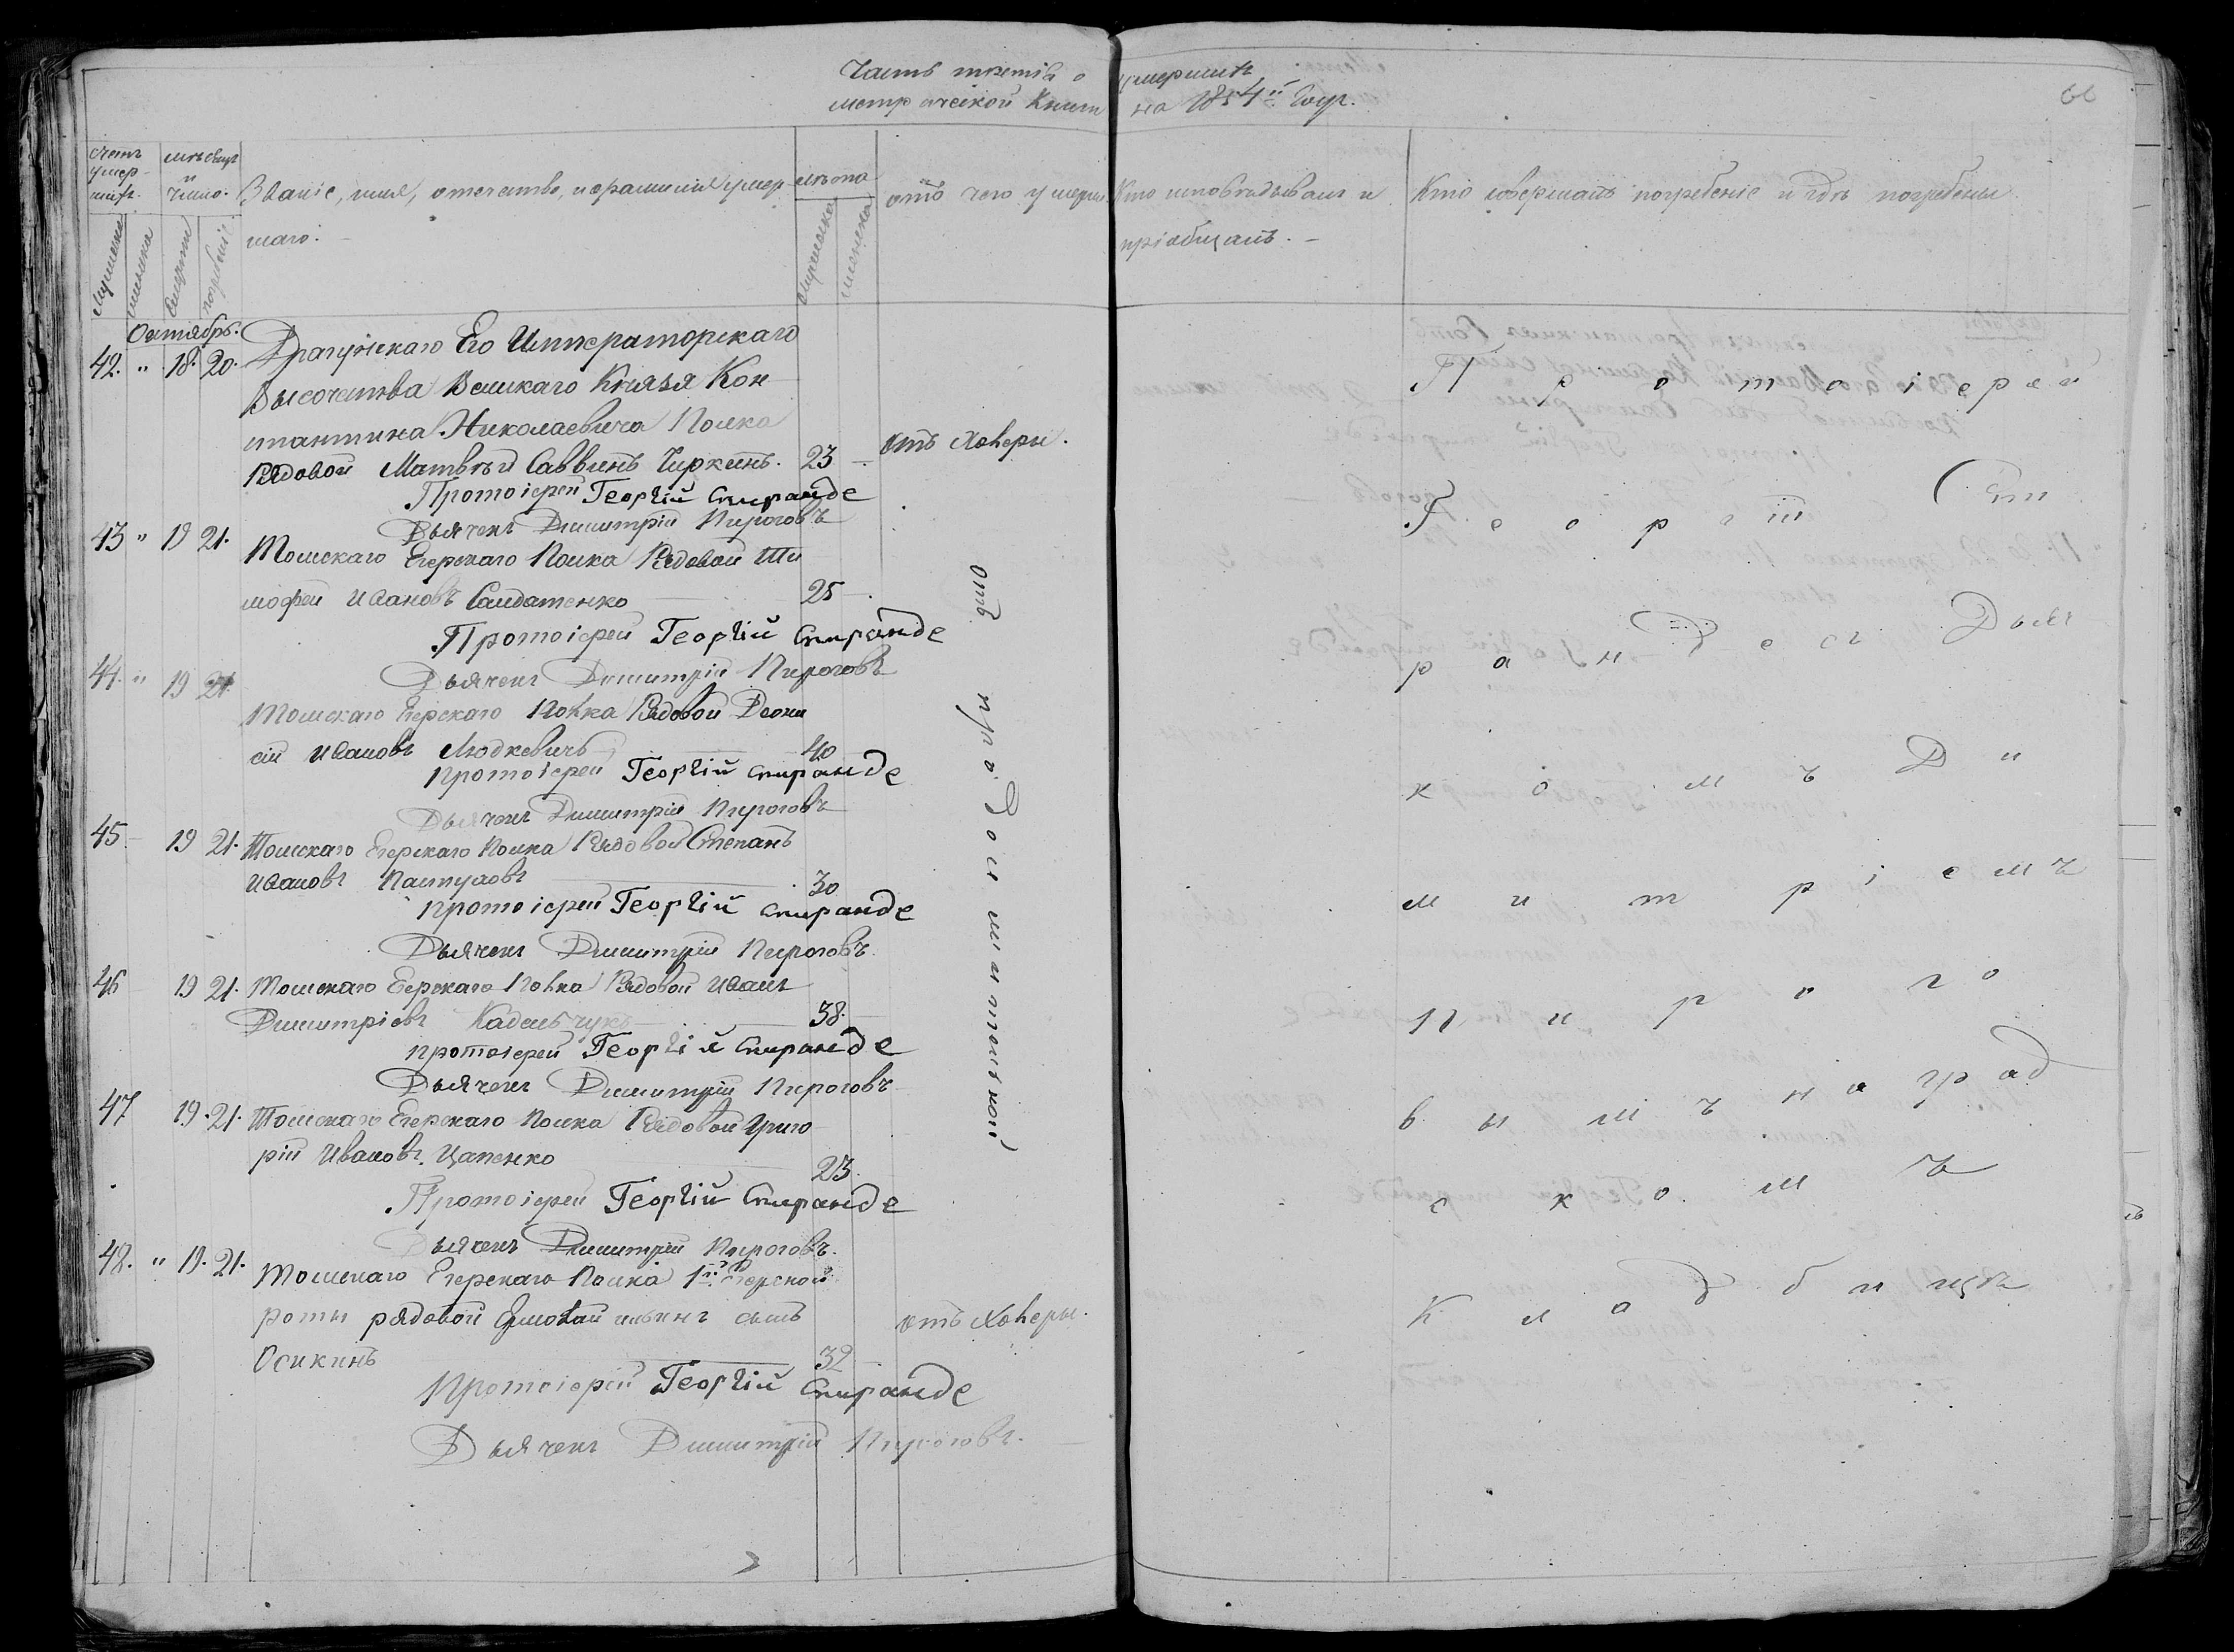 Часть третія о умершихъ
метрической Книги на 1854й Годъ.
Счетъ умершихъ.
мѣсяцъ и число.
Званіе, имя, отечество, и фамилія умершаго.
лѣта
отъ чего умерли
Кто исповѣдывалъ и пріобщалъ.
Кто совершалъ погребеніе и гдѣ погребены
Мужеска
женска
Смерти
погребенія
Мужеска
женска
Октябрь.
42. " 18. 20. Драгунскаго Его Императорскаго
Высочества Великаго Князя Кон
стантина Николаевича Полка
Рядовой Матвѣй Саввинъ Чиркинъ. 23 отъ Холеры.
Протоіерей Георгій Спиранде
Дьячекъ Димитрій Пироговъ
43 " 19 21. Томскаго Егерскаго Полка Рядовой Ти
мофей Ивановъ Салдатенко 25
Протоіерей Георгій Спиранде
Дьячекъ Димитрій Пироговъ
44. " 19 21. Томскаго Егерскаго Полка Рядовой Деони
сій Ивановъ Людкевичъ 40
Протоіерей Георгій Спиранде
Дьячекъ Димитрій Пироговъ
45 19 21. Томскаго Егерскаго Полка Рядовой Степанъ
Ивановъ Пастуховъ 30
протоіерей Георгій Спиранде
Дьячекъ Димитрій Пироговъ
46 19 21. Томскаго Егерскаго Полка Рядовой Иванъ
Димитріевъ 38.
протоіерей Георгій Спиранде
Дьячекъ Димитрій Пироговъ
47 19. 21. Томскаго Егерскаго Полка Рядовой Григо
рій Ивановъ Цапенко 23.
Протоіерей Георгій Спиранде
Дьячекъ Димитрій Пироговъ.
48. " 19. 21. Томскаго Егерскаго Полка 1й Егерской
роты рядовой Ермолай ильинъ сынъ отъ Холеры.
Осикинъ 32
Протоіерей Георгій Спиранде
Дьячекъ Димитрій Пироговъ.
отъ продолжительной
Протоіерей
Георгій Спи
рандe съ Дьяч
комъ Ди
митріемъ
Пирого
вымъ на град
скомъ
Кладбищѣ